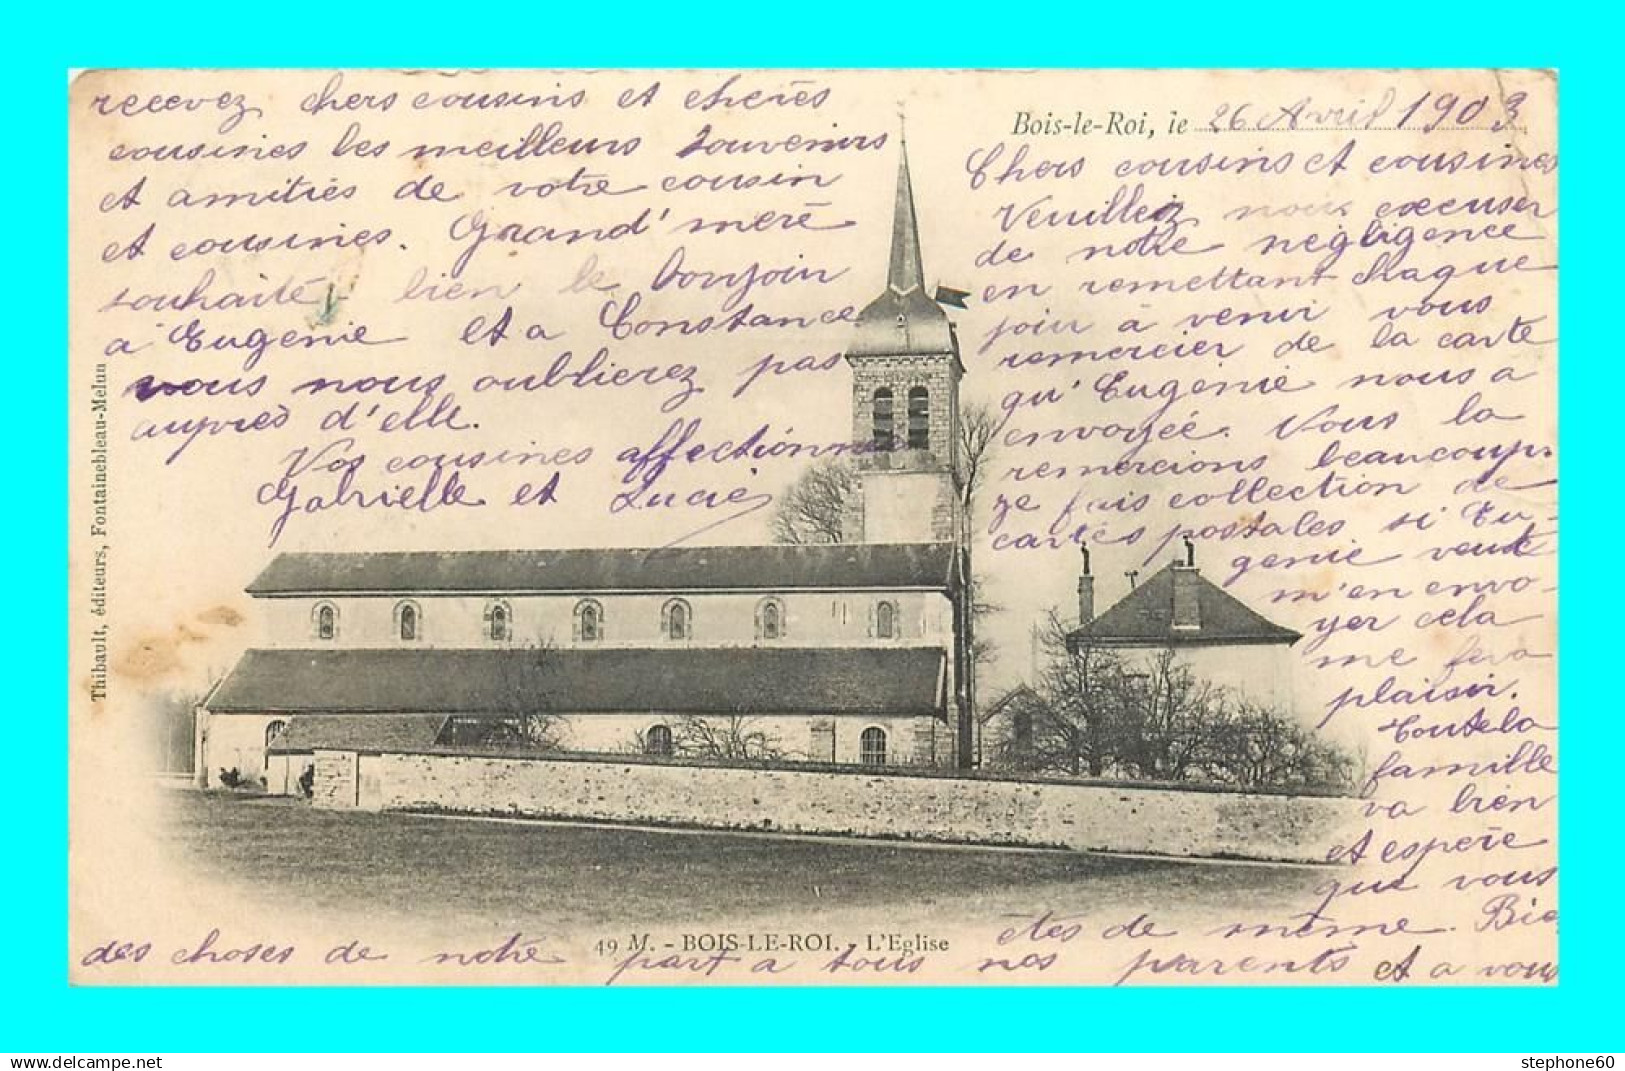 Bois-le-Roi, le 26 Avril 1903
Chers cousins et cousines
Veuillez nous excuser
de notre négligence
en remettant chaque
jour à venir vous
remercier de la carte
qu'Eugénie nous a
envoyée. Nous la
remercions beaucoup
je fais collection de
cartes postales si Eu-
genie veut
m'en envo-
yer cela
me fera
plaisir.
Toute la
famille
va bien
et espère
que vous
etes de même. Bie
des choses de notre part a tous nos parents et a vous
recevez chers cousins et chères
cousines les meilleurs souvenirs
et amitiés de votre cousin
et cousines. Grand'mère
souhaite bien le bonjoin
a Eugenie et a Constance
vous nous oublierez pas
auprès d'elle.
Vos cousines affectionnées
Gabrielle et Lucie
Thibault, éditeurs, Fontainebleau-Melun
49 M. - BOIS-LE-ROI. - L'Eglise
www.delcampe.net
stephone60